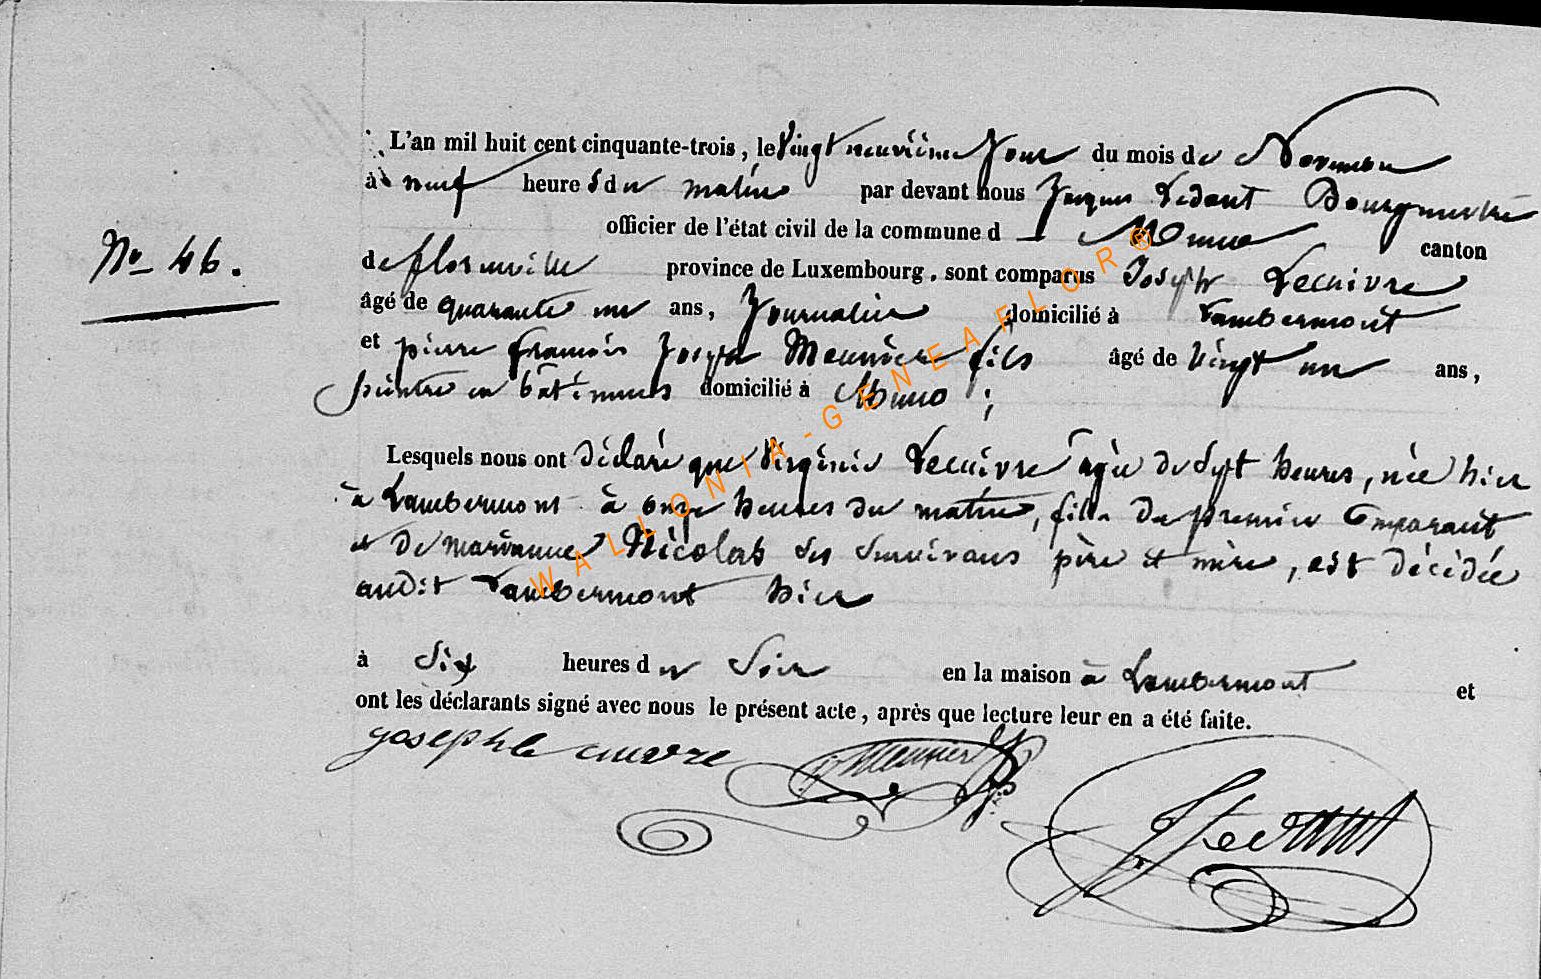 L'an mil huit cent cinquante-trois, le Vingt neuvième Jour du mois de Novembre
à neuf heures du matin par devant nous Jacques Ledant Bourgmestre
officier de l'état civil de la commune d — Muno canton
No 46.
de florenville province de Luxembourg, sont comparus Joseph Lecuivre
âgé de quarante un ans, Journalier domicilié à Lambermont
et pierre françois Joseph Meunier fils âgé de Vingt un ans,
peintre en bâtiments domicilié à Muno ;
Lesquels nous ont déclaré que Virginie Lecuivre agée de Sept heures, née hier
à Lambermont à onze heures du matin, fille du premier Comparant
et de marianne Nicolas ses survivans père et mère, est décédée
audit Lambermont hier
à Six heures du Soir en la maison à Lambermont et
ont les déclarants signé avec nous le présent acte, après que lecture leur en a été faite.
joseph le cuivre Meunier JLedant
WALLONIA-GENEAFLOR®